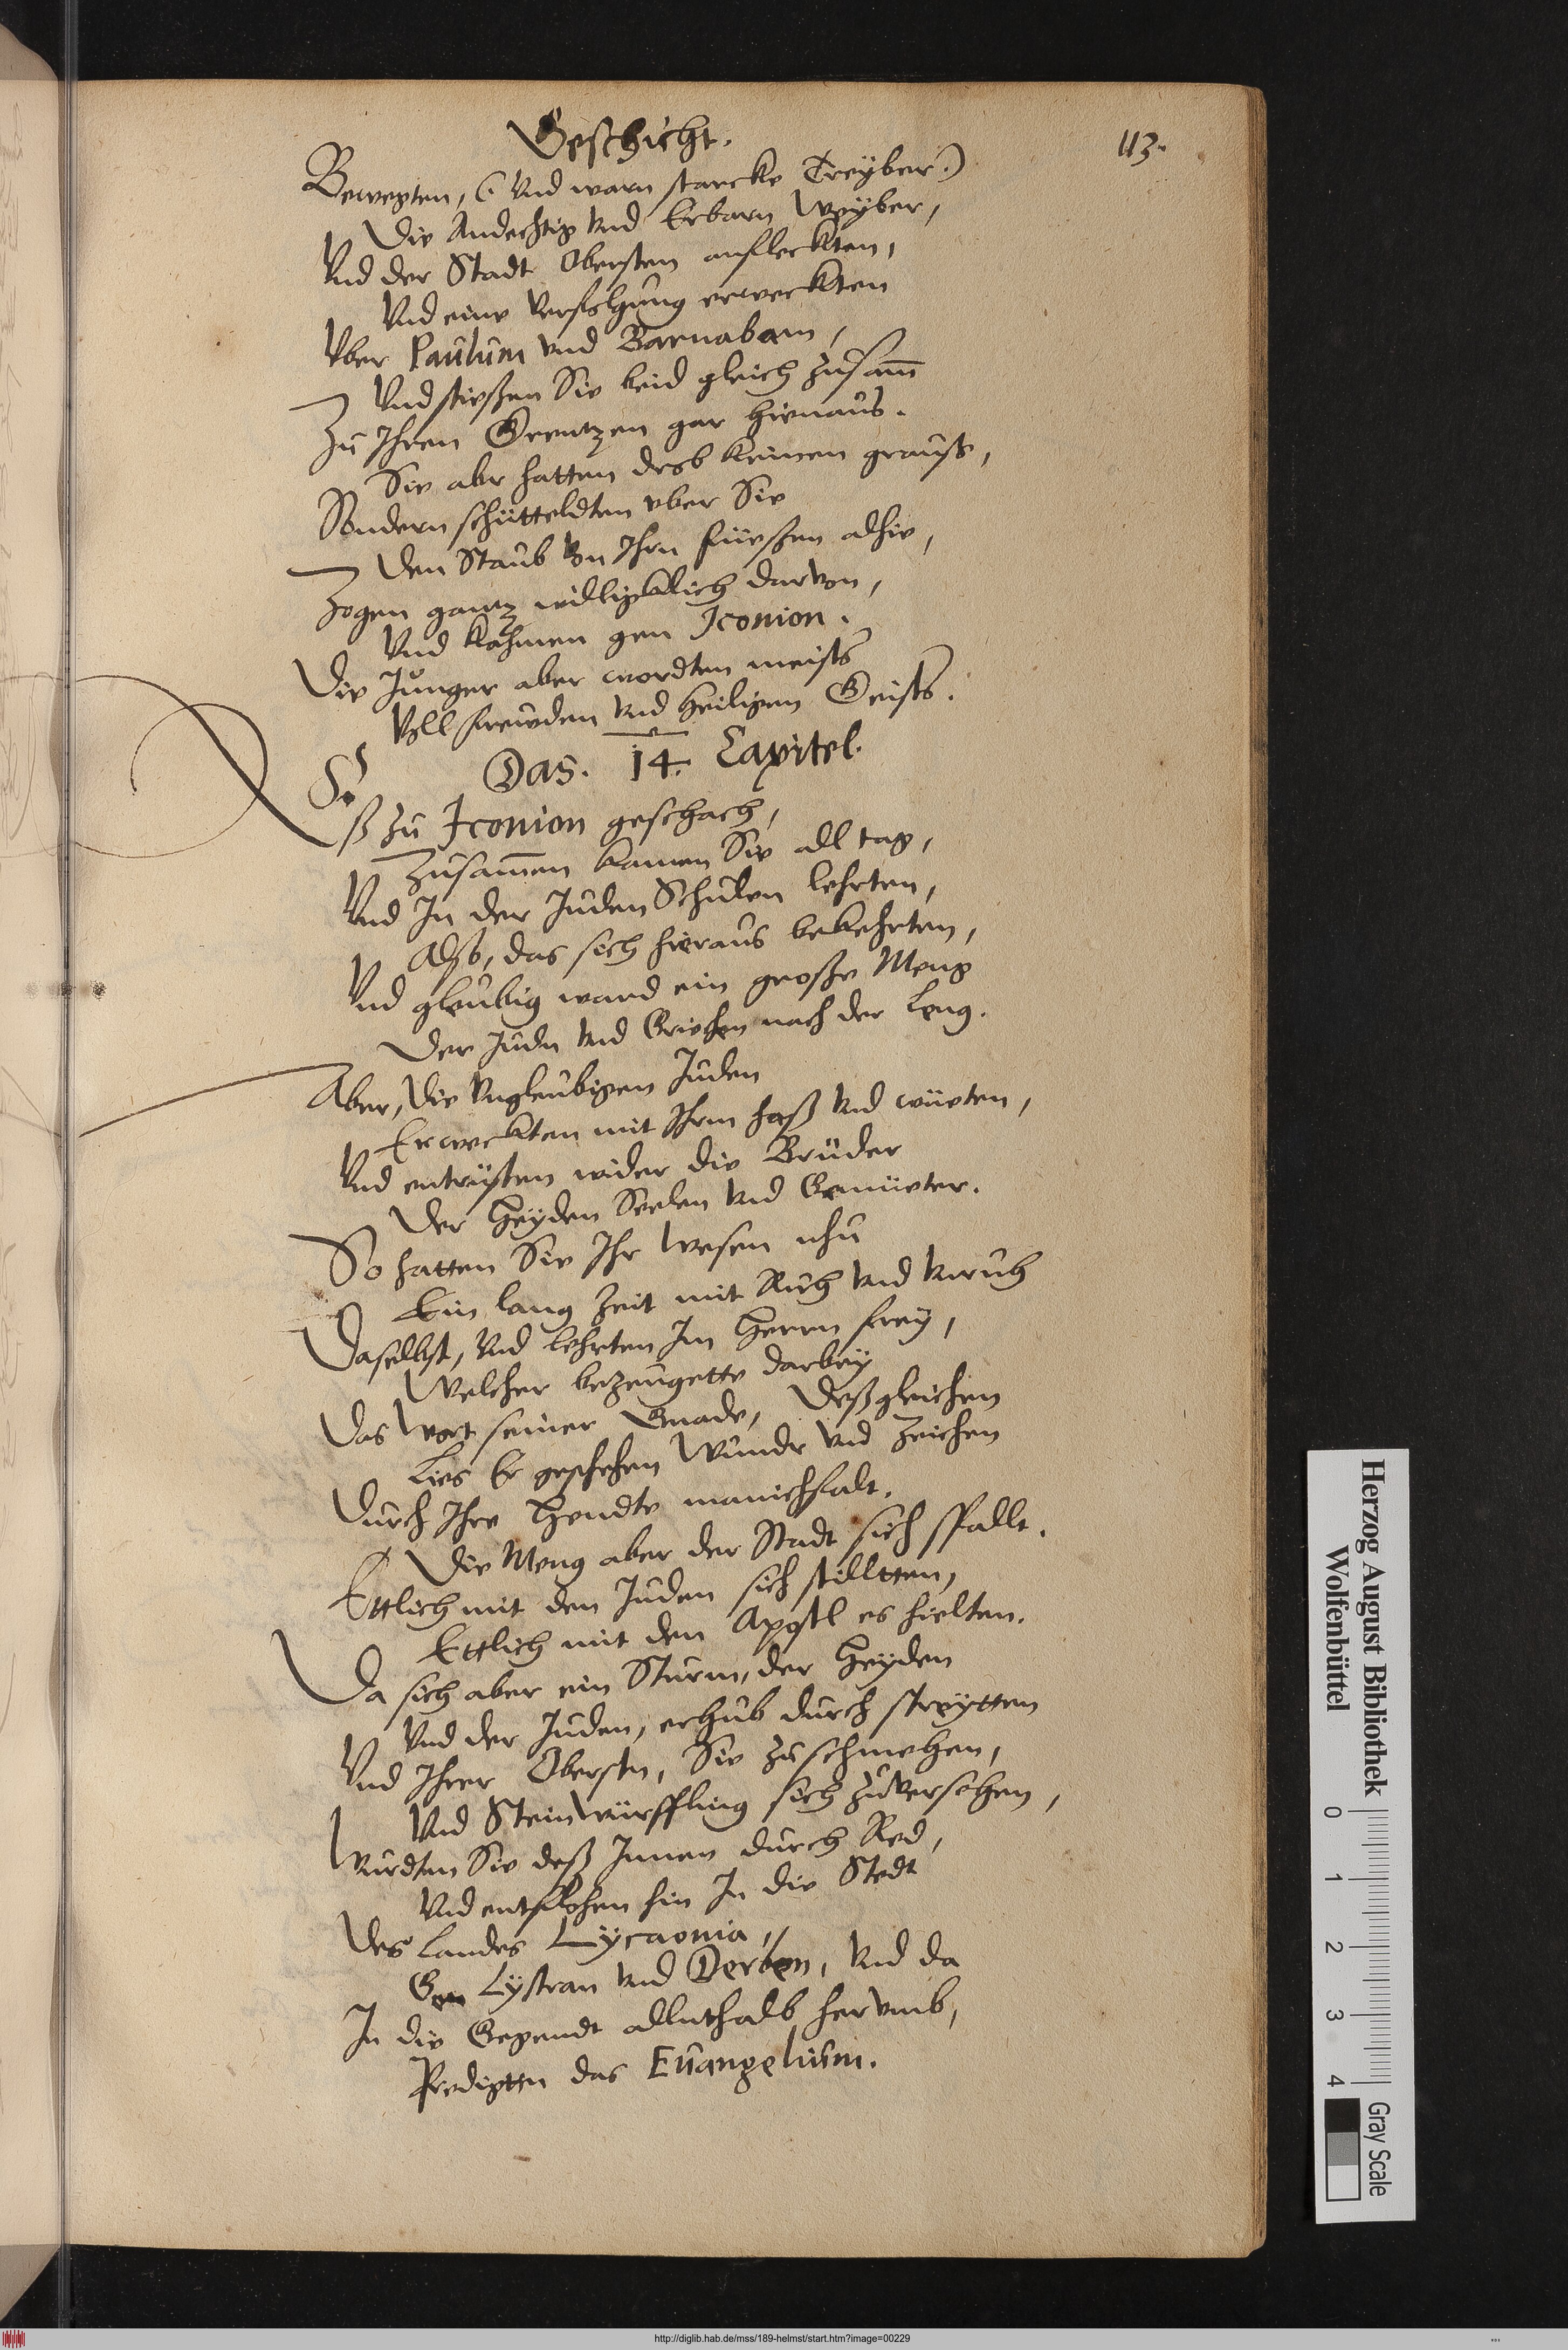 Geschicht.
113.
Bewegten, (Vnd warn starcke Treÿber.)
Die Andechtig vnd Erbarn Weÿber,
Vnd der Stadt Obersten anfleckten,
Vnd eine verfolgung erweckten
Vber Paulum vnd Barnabam,
Vnd stießen Sie beid gleich zusam̄
Zu Ihren Grentzen gar hienaus.
Sie abr hatten drob keinen grauß,
Sondern schütteldten vber Sie
Den Staub von Ihrn füeßen alhie,
Zogen gantz williglich darvon,
Vnd kahmen gen Iconion.
Die Junger aber wordten meists
Voll frewden vnd heiligen Geists.
Das. 14. Capitel.
Eß zu Iconion geschach,
Zusam̄en kamen Sie all tag,
Vnd In der Juden Schulen lehrten,
Also, das sich hieraus bekehrten,
Vnd gleubig ward ein große Meng
Der Judn vnd Griechen nach der Leng.
Aber, die Vngleubigen Juden
Erweckten mit Ihrm haß vnd wüeten,
Vnd entrüsten wider die Brüder
Der Heÿden Seelen vnd Gemüeter.
So hatten Sie Ihr Wesen nhu
Ein lang Zeit mit Ruh vnd vnruh
Daselbst, vnd lehrten Im Herrn freÿ,
Welcher bezeugette darbeÿ
Das Wort seiner Gnade, deßgleichen
Lies Er geschehen Wundr vnd Zeichen
Durch Ihre Hendte manichfalt.
Die Meng aber der Stadt sich spallt.
Ettlich mit den Juden sich stilltten,
Ettlich mit den Apostl es hielten.
Da sich aber ein Sturm, der Heÿden
Vnd der Juden, erhub durch streÿtten
Vnd Ihrer Oberstn, Sie zu schmehen,
Vnd Steinwürffling sich zuversehen,
Wurdten Sie deß Innen durch Red,
Vnd entflohen hin In die Stedt
Des Landes Lÿcaonia,
Gen Lÿstran vnd Derben, Vnd da
In die Gegendt allnthalb hervmb,
Predigttn das Euangelium.
Herzog August Bibliothek
Wolfenbüttel
0 1 2 3 4
Gray Scale
http://diglib.hab.de/mss/189-helmst/start.htm?image=00229